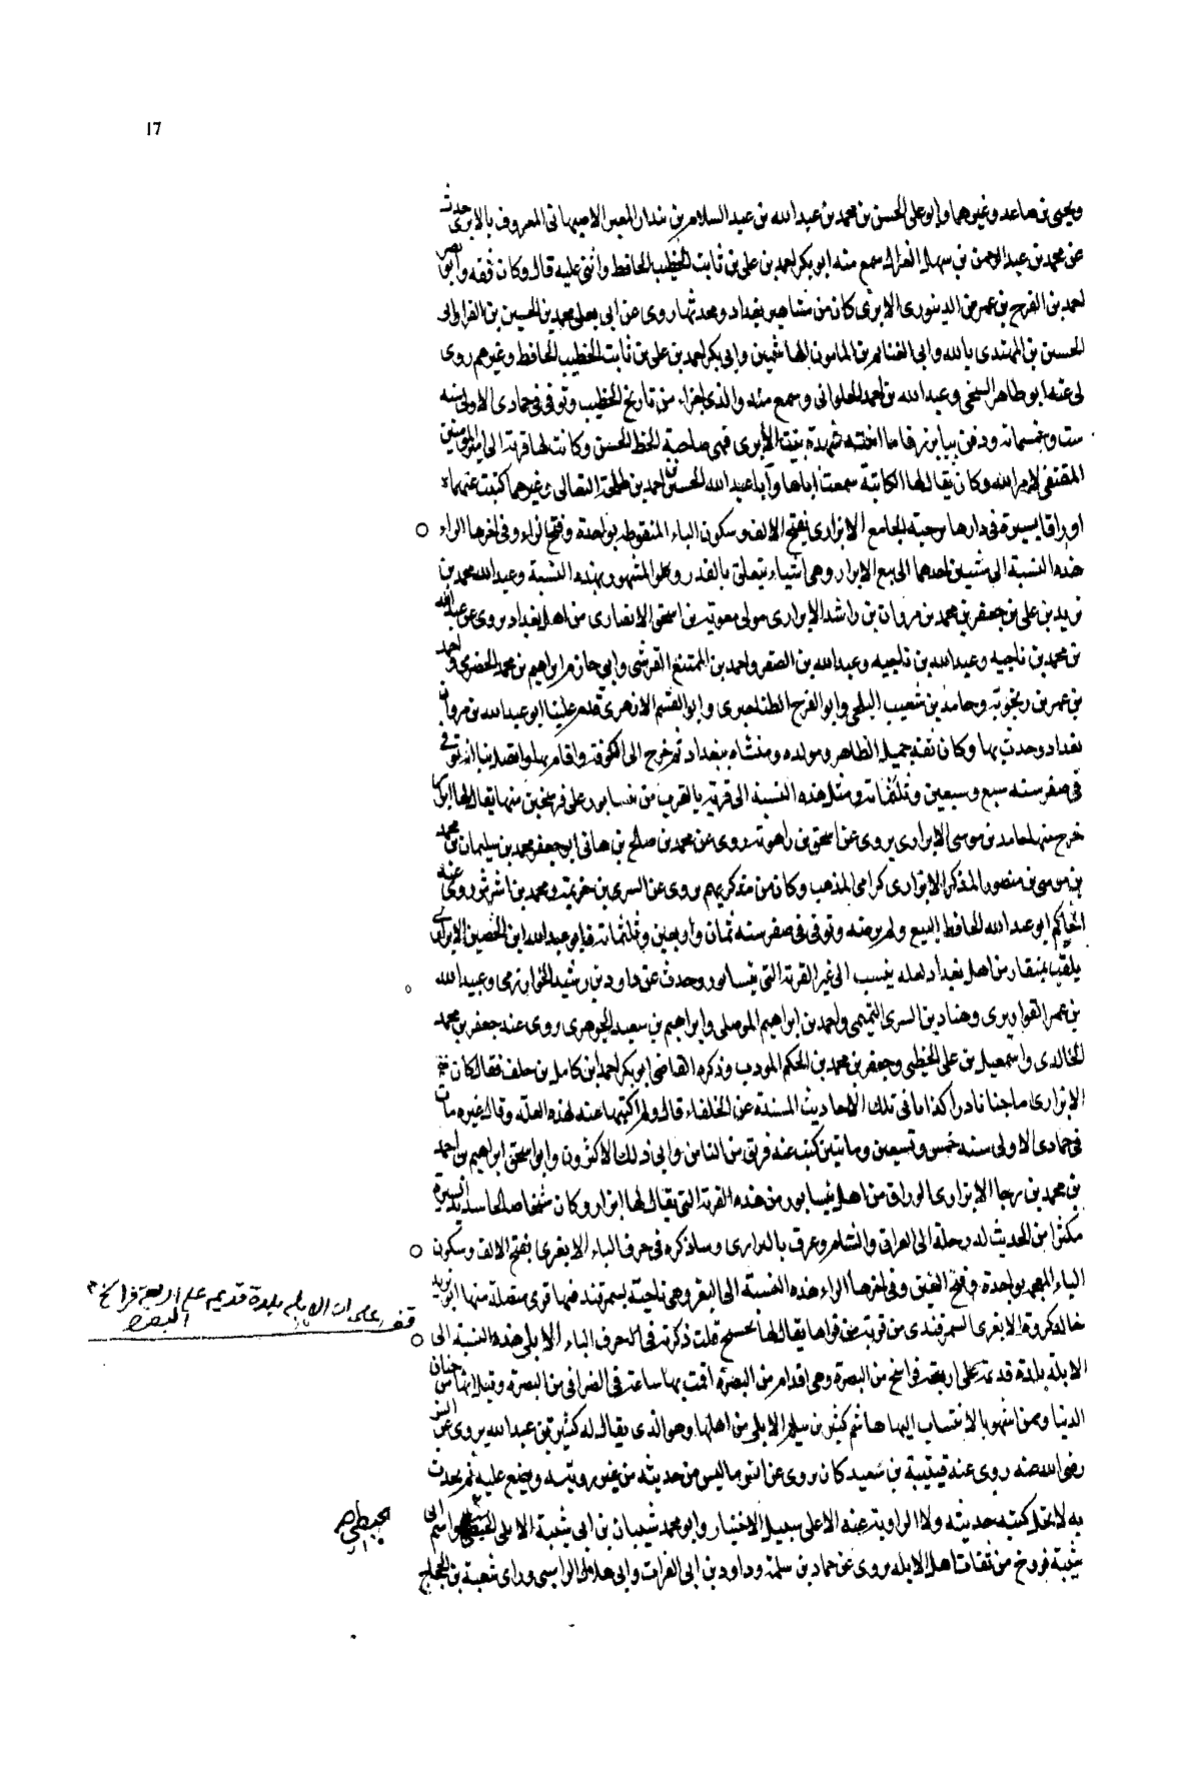 17
ويحيى بن صاعد وغيرهما وابو على الحسن بن محمد بن عبد الله بن عبد السلام بن بندار المعبر الاصبهانى المعروف بالابرى حدث
عن محمد بن عبد الرحمن بن سهل الغزال سمع منه ابو بكر احمد بن على بن ثابت الخطيب الحافظ واثنى عليه قال وكان ثقة وابو نصر
احمد بن الفرج بن عمر من الدينورى الابرى كان من مشاهير بغداد ومحدثيها روى عن ابى يعلى محمد بن الحسين بن الفرا وابى
الحسين بن المهتدى بالله وابى الغنائم بن المامون الهاشميين وابى بكر احمد بن على بن ثابت الخطيب الحافظ وغيرهم روى
لى عنه ابو طاهر السنجى وعبد الله بن احمد الحلوانى وسمع منه والدى اجزاء من تاريخ الخطيب وتوفى فى جمادى الاولى سنه
ست وخمسمائه ودفن بباب ابرز فاما ابنته شهدة بنت الأبرى فهى صاحبة الخط الحسن وكانت لها قربة الى امير المومنين
المقتفى لامر الله وكان يقال لها الكاتبة سمعت اباها وأبا عبد الله الحسين بن احمد بن طلحة النعالى وغيرهما كتبت عنهما
اوراقا يسيرة فى دارها برحبة الجامع الابزارى بفتح الالف وسكون الباء المنقوطه بواحدة وفتح الزاء وفى اخرها الراء
هذه النسبة الى شيئين احدهما الى بيع الابزار وهى اشياء يتعلق بالقدر وعلى المشهور بهذه النسبة وعبد الله محمد بن
يزيد بن على بن جعفر بن محمد بن مروان بن راشد الابزارى مولى معوية بن اسحق الانصارى من اهل بغداد يروى عن عبد الله
بن محمد بن ناجيه وعبد الله بن ناجيه وعبد الله بن الصقر واحمد بن الممتنع القرشى وابى حازم ابراهيم بن محمد الحضرى واحمد
بن عمر بن زنجويه وحامد بن شعيب البلخى وابو الفرج الطناجيرى وابو القسم الازهرى قدم علينا ابو عبد الله بن مروان
بغداد وحدث بها وكان ثقة جميل الظاهر ومولده ومنشاه ببغداد ثم خرج الى الكوفة واقام بها واتصل بنا انه توفى
فى صفر سنه سبع وسبعين وثلثمائه ومثل هذه النسبه الى قرية بالقرب من نيسابور على فرسخين منها يقال لها ابزار
خرج منها حامد بن موسى الابزارى يروى عن اسحق بن راهوته روى عن محمد بن صالح بن هانى ابو جعفر محمد بن سليمان بن محمد
بن موسى بن منصور المذكر الابزارى كرامى المذهب وكان من مذكريهم يروى عن السرى بن خزيمة ومحمد بن اشرس روى عنه
الحاكم ابو عبد الله الحافظ البيع ولم يرضه وتوفى فى صفر سنه ثمان واربعين وثلثمائه فاما عبد الله ابن الحصين الابزارى
يلقب بمنقار من اهل بغداد لعله ينسب الى غير القرية التى بنيسابور وحدث عن داود بن رشيد الخوارزمى وعبيد الله
بن عمر القواريرى وهناد بن السرى التميمى واحمد بن ابراهيم الموصلى وابراهيم بن سعيد الجوهرى روى عنه جعفر بن محمد
الخالدى واسمعيل بن على الخطبى وجعفر بن محمد بن الحكم المودب وذكره القاضى ابو بكر احمد بن كامل بن خلف فقال كان
الابزارى ماجنا نادرا كذابا فى تلك الاحاديث المسندة عن الخلفاء قال ولم اكتبها عنه لهذه العلة وقال غيره مات
فى جمادى الاولى سنه خمس وتسعين ومايتين كتب عنه فريق من الناس وابى ذلك الاكثرون وابو اسحق ابراهيم بن احمد
بن محمد بن رجا الابزارى الوراق من اهل نيسابور من هذه القرية التى يقال لها ابزار وكان
مكثرا من الحديث له رحلة الى العراق والشام وعرف بالبزارى وساذكره فى حرف الباء الابغرى بفتح الالف وسكون
الباء المعجمه بواحدة وفتح الغين وفى اخرها الراء هذه النسبة الى ابغر وهى ناحية بسمرقند فيها قرى متصلة منها ابو يزيد
خالد كروة الابغرى السمرقندى من قرية من قراها يقال لها قلت ذكرته فى حرف الباء الابلى هذه النسبة الى
الابلة بلدة قديمة على اربعه فراسخ من البصرة وهى اقدام من البصرة اقمت بها ساعة فى انصرافى من البصرة وقيل انها من جنان
الدنيا وممن اشتهر بالانتساب اليها هاشم كثير بن سليم الابلى من اهلها وهو الذى يقال له كثير بن عبد الله يروى عن انس
رضى الله عنه روى عنه قتيبة بن سعيد كان يروى عن انس ما ليس من حديثه من غير رويته ويضع عليه ثم يحدث
به لا تحل كتبه حديثه ولا الرواية عنه الا على سبيل الاختيار وابو محمد شيبان بن ابى شيبة الابلى واسم ابى
شيبة فروخ من ثقات اهل الابله يروى عن حماد بن سلمة وداود بن ابى الفرات وابى هلال الراسبى وراى شعبة بن الحجاج
قف على ان الابلة بلدة قديمه على اربعة فراسخ من
البصرة